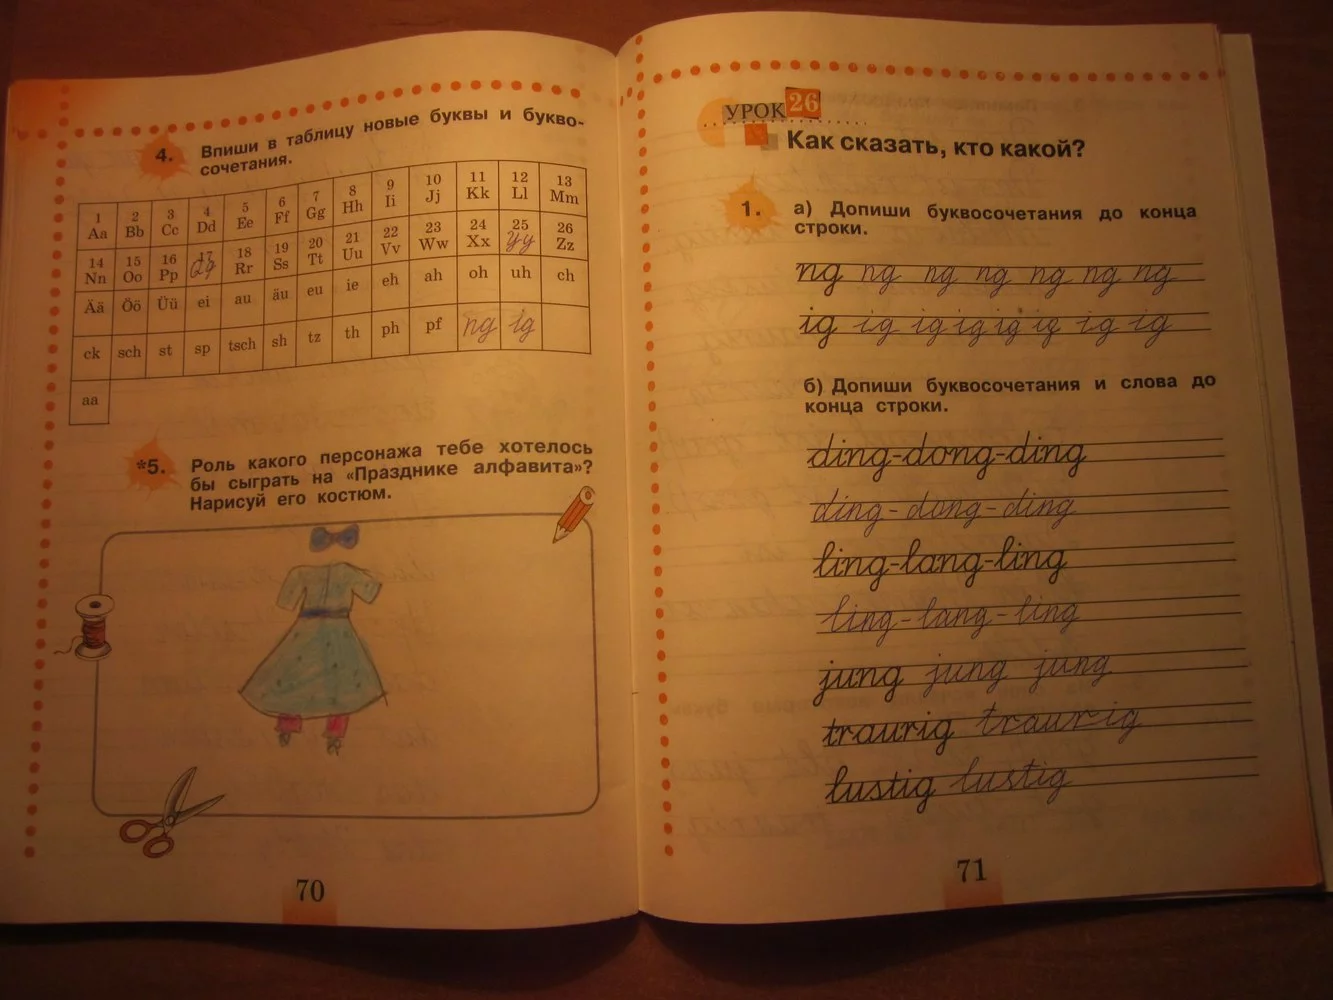 4. Впиши в таблицу новые буквы и букво-
сочетания.
1 2 3 4 5 6 7 8 9 10 11 12 13
Aa Bb Cc Dd Ee Ff Gg Hh Ii Jj Kk Ll Mm
14 15 16 17 18 19 20 21 22 23 24 25 26
Nn Oo Pp Qq Rr Ss Tt Uu Vv Ww Xx Yy Zz
Ää Öö Üü ei au äu eu ie eh ah oh uh ch
ck sch st sp tsch sh tz th ph pf ng ig
aa
*5. Роль какого персонажа тебе хотелось
бы сыграть на «Празднике алфавита»?
Нарисуй его костюм.
70
УРОК 26
Как сказать, кто какой?
1. а) Допиши буквосочетания до конца
строки.
ng ng ng ng ng ng ng
ig ig ig ig ig ig ig ig
б) Допиши буквосочетания и слова до
конца строки.
ding-dong-ding
ding-dong-ding
ling-lang-ling
ling-lang-ling
jung jung jung
traurig traurig
lustig lustig
71